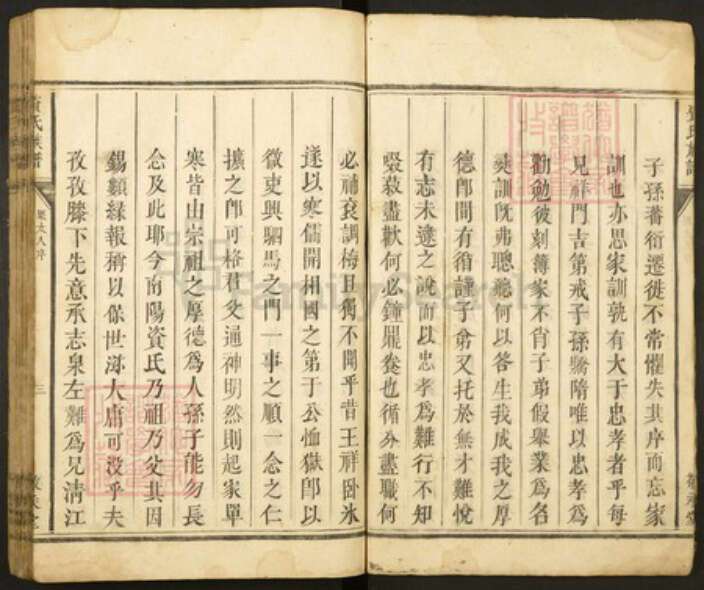 子孫蕃衍遷徙不常懼失其序而忘家
訓也亦思家訓孰有大于忠孝者乎每
見祥門吉第戒子孫驕隋唯以忠孝爲
勸勉彼刻薄家不肖子弟假舉業爲名
奭訓旣弗聰聽何以答生我成我之厚
德卽間有循謹子弟又托於無才難悅
有志未逮之說而以忠孝爲難行不知
啜菽盡歡何必鐘鼎養也循分盡職何
必補袞調梅且獨不聞乎昔王祥卧氷
遂以寒儒開相國之第于公恤獄卽以
微吏興駟馬之門一事之順一念之仁
擴之卽可格君父通神明然則起家單
寒皆由宗祖之厚德爲人孫子能勿長
念及此耶今南陽資氏乃祖乃父其因
錫類緣報旃以保世滋大庸可没乎夫
孜孜膝下先意承志泉左難爲兄淸江
資氏族譜
三